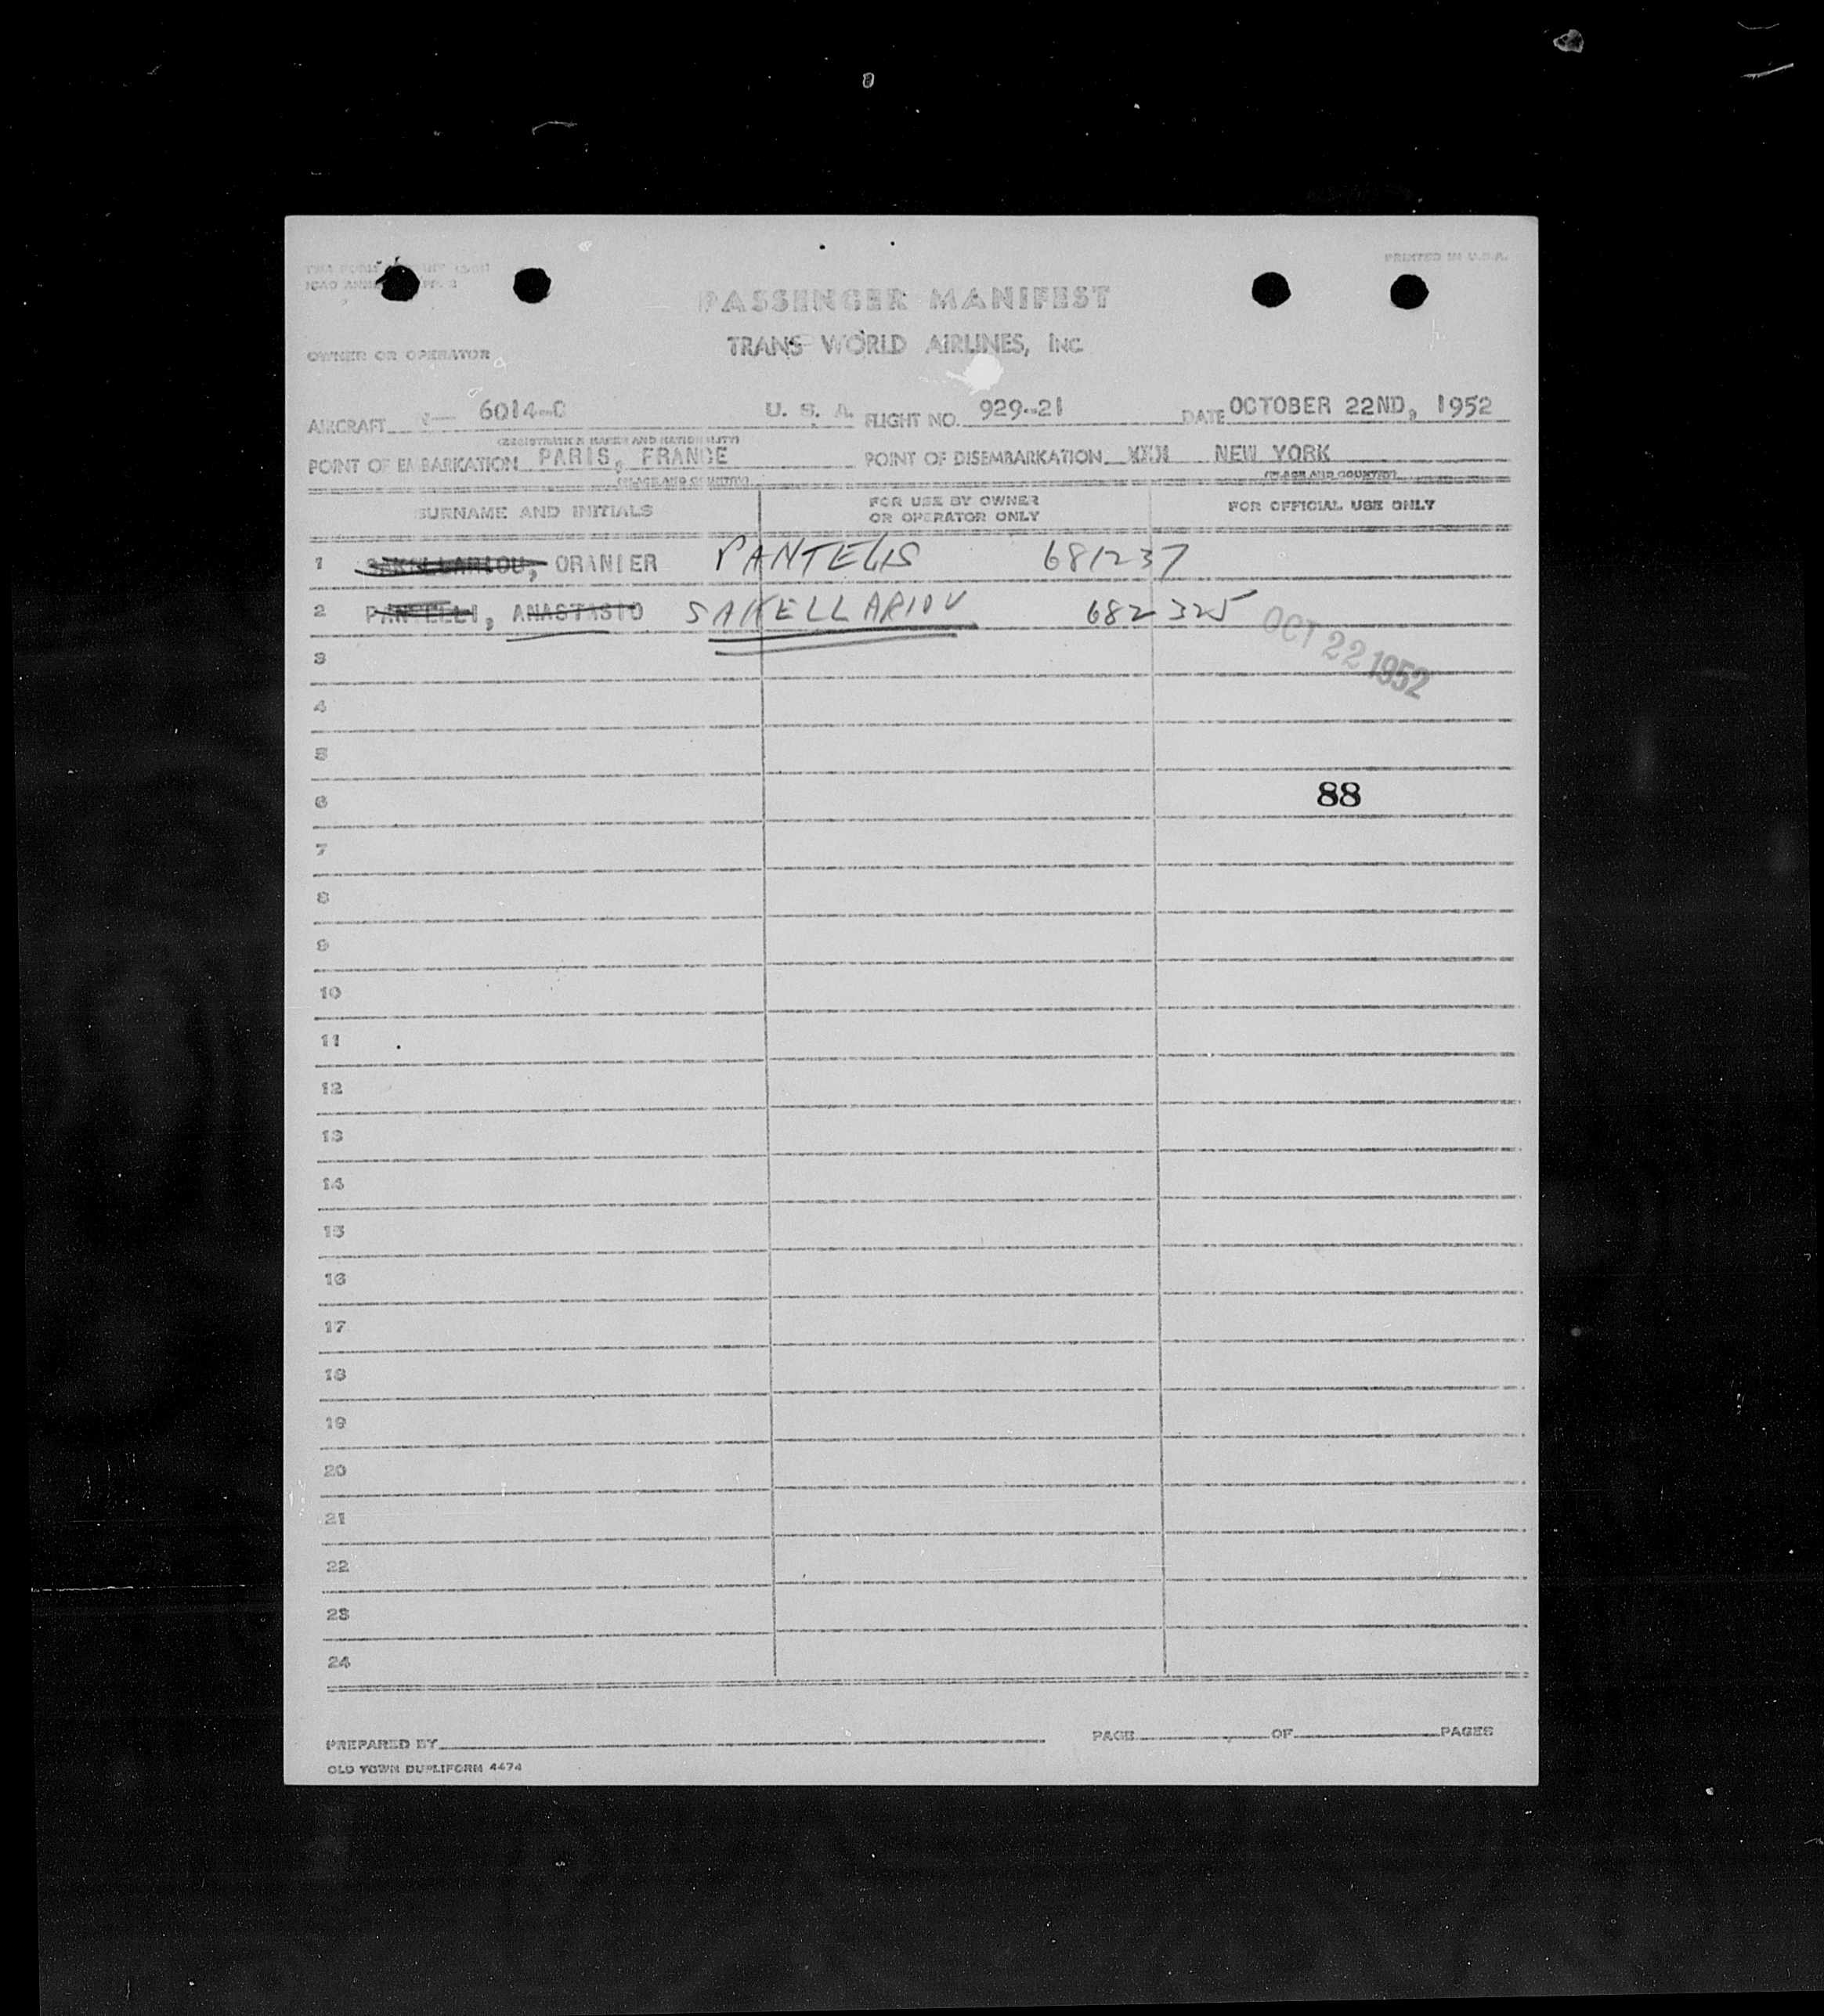 PRINTED IN U.S.A.
PASSENGER MANIFEST
TRANS WORLD AIRLINES, INC
OWNER OR OPERATOR
AIRCRAFT 6014-C U. S. A. FLIGHT NO. 929-21 DATE OCTOBER 22ND, 1952
(REGISTRATION MARKS AND NATIONALITY)
POINT OF EMBARKATION PARIS, FRANCE POINT OF DISEMBARKATION XXX NEW YORK
(PLACE AND COUNTRY) (PLACE AND COUNTRY)
SURNAME AND INITIALS FOR USE BY OWNER OR OPERATOR ONLY FOR OFFICIAL USE ONLY
1 SAKELLARIOU, ORANIER PANTELIS 681237
2 PANTELLI, ANASTASIO SAKELLARIOU 682325
OCT 22 1952
3
4
5
6 88
7
8
9
10
11
12
13
14
15
16
17
18
19
20
21
22
23
24
PREPARED BY PAGE OF PAGES
OLD TOWN DUPLIFORM 4474